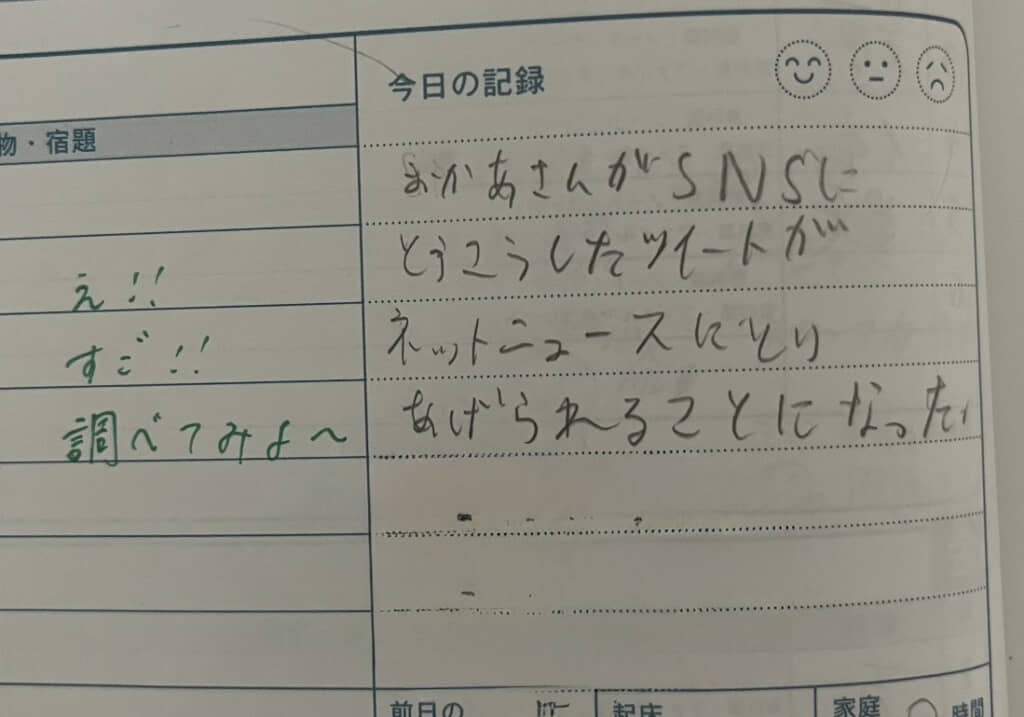 今日の記録
物・宿題
おかあさんがSNSに
とうこうしたツイートが
え!!
ネットニュースにとり
すご!!
あげられることになった。
調べてみよ〜
前日の
起床
家庭
時間